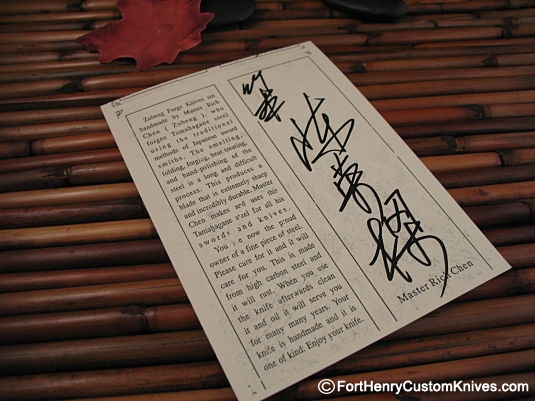 Zubeng Forge Knives are
handmade by Master Rich
Chen ( Zubeng ), who
forges Tamahagane steel
using the traditional
methods of Japanese sword
smiths. The smelting,
folding, forging, heat treating,
and hand-polishing of the
steel is a long and difficult
process. This produces a
blade that is extremely sharp
and incredibly durable. Master
Chen makes and uses this
Tamahagane steel for all his
swords and knives.
You are now the proud
owner of a fine piece of steel.
Please care for it and it will
care for you. This is made
from high carbon steel and
it will rust. When you use
the knife afterwards clean
it and oil it will serve you
for many many years. Your
knife is handmade and it is
one of kind. Enjoy your knife.
Master Rich Chen
© FortHenryCustomKnives.com